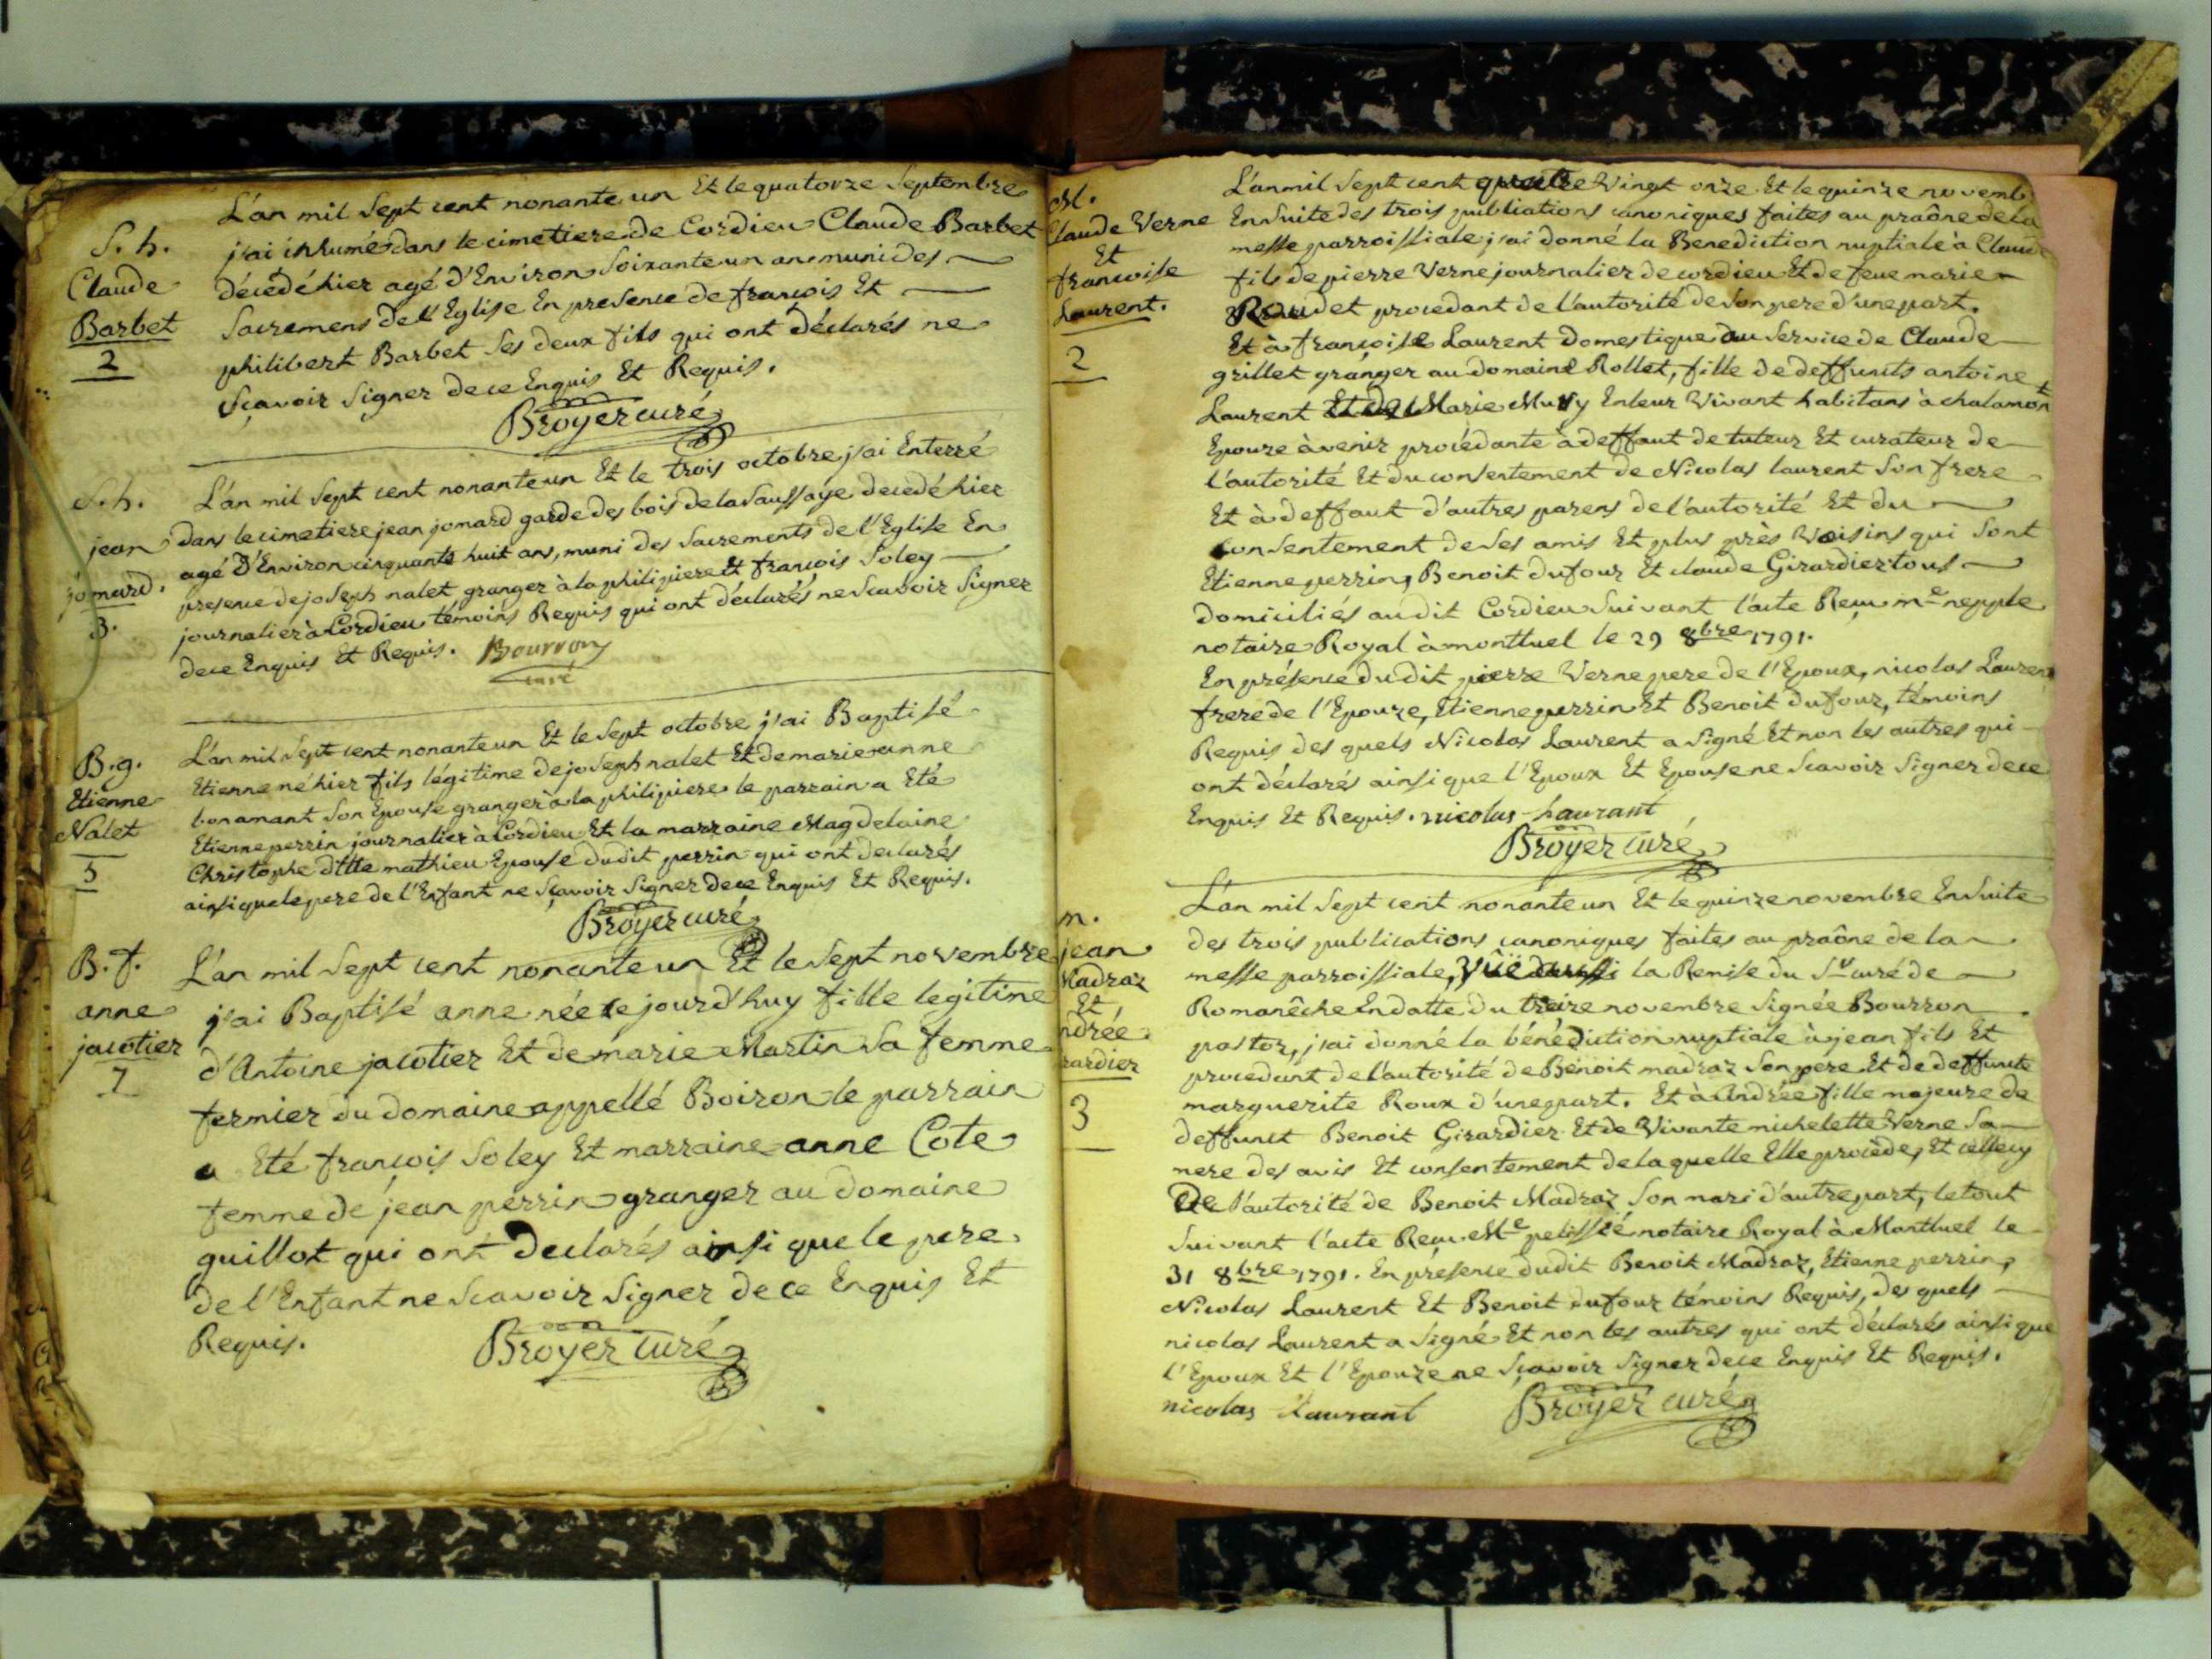 S. h.
Claude
Barbet
2
L'an mil Sept cent nonante un Et le quatorze Septembre
j'ai inhumé dans le cimetiere de Cordieu Claude Barbet
décédé hier agé d'Environ Soixante un an muni des
Sacremens de l'Eglise En presence de francois Et
philibert Barbet Ses deux fils qui ont déclarés ne
Sçavoir Signer de ce Enquis Et Requis.
Broyer curé
S. h.
jean
jomard.
3.
L'an mil Sept cent nonante un Et le trois octobre j'ai Enterré
dans le cimetiere jean jomard garde des bois de la Saussaye decedé hier
agé d'Environ cinquante huit ans, muni des Sacrements de l'Eglise En
presence de joseph nalet granger à la philipiere Et francois Soley
journalier à Cordieu témoins Requis qui ont déclarés ne Scavoir Signer
de ce Enquis Et Requis. Bourron
curé
B. g.
Etienne
Nalet
5
L'an mil Sept cent nonante un Et le Sept octobre j'ai Baptisé
Etienne né hier fils légitime de joseph nalet Et de marie anne
bonamant Son Epouse granger à la philipiere le parrain a Eté
Etienne perrin journalier à Cordieu Et la marraine Magdelaine
Christophe ditte mathieu Epouse dudit perrin qui ont declarés
ainsi que le pere de l'Enfant ne Sçavoir Signer de ce Enquis Et Requis.
Broyer curé
B. f.
anne
jacotier
7
L'an mil Sept cent nonante un Et le Sept novembre
j'ai Baptisé anne née ce jourd'huy fille legitime
d'Antoine jacotier Et de marie Martin Sa femme
fermier du domaine appellé Boiron le parrain
a Eté françois Soley Et marraine anne Cote
femme de jean perrin granger au domaine
guillot qui ont declarés ainsi que le pere
de l'Enfant ne Scavoir Signer de ce Enquis Et
Requis.
Broyer curé
M.
Claude Verne
Et
francoise
Laurent.
2
L'an mil Sept cent quatre Vingt onze Et le quinze novemb
Ensuite des trois publications canoniques faites au praône de la
messe parroissiale, j'ai donné la Benediction nuptiale à Claude
fils de pierre Verne journalier de cordieu Et de feue marie
procedant de l'autorité de Son pere d'une part.
Et à françoise Laurent domestique au Service de Claude
grillet granger au domaine Rollet, fille de deffunts antoine
Laurent Et de Marie Enleur Vivant habitans à chalamont
Epouze à venir procédante à deffaut de tuteur Et curateur de
l'autorité Et du consentement de Nicolas laurent Son frere
Et à deffaut d'autres parens de l'autorité Et du
consentement de Ses amis Et plus près Voisins qui Sont
Etienne perrin, Benoit dufour Et claude Girardier tous
domiciliés audit Cordieu Suivant l'acte Reçu me nepple
notaire Royal à montluel le 29 8bre 1791.
En présence dudit pierre Verne pere de l'Epoux, nicolas Laurent
frere de l'Epouze, Etienne perrin Et Benoit dufour, témoins
Requis des quels Nicolas Laurent a Signé Et non les autres qui
ont déclarés ainsi que l'Epoux Et Epouse ne Scavoir Signer de ce
Enquis Et Requis. nicolas laurant
Broyer curé
m.
jean
Madraz
Et
ndrée
rardier
3
L'an mil Sept cent nonante un Et le quinze novembre Ensuite
des trois publications canoniques faites au praône de la
messe parroissiale, Vûe aussi la Remise du Sr curé de
Romanêche En datte du treize novembre Signée Bourron
pastor, j'ai donné la bénédiction nuptiale à jean fils Et
procedant de l'autorité de Benoit madraz Son pere Et de deffunte
marguerite Roux d'une part. Et à Andrée fille majeure de
deffunct Benoit Girardier Et de Vivante michelette Verne Sa
mere des avis Et consentement de laquelle Elle procède, Et cellecy
De l'autorité de Benoit Madraz Son mari d'autre part, le tout
Suivant l'acte Reçu Me pelissié notaire Royal à Montluel le
31 8bre 1791. En présence dudit Benoit Madraz, Etienne perrin,
Nicolas Laurent Et Benoit dufour témoins Requis, des quels
nicolas Laurent a Signé Et non les autres qui ont déclarés ainsi que
l'Epoux Et l'Epouze ne Sçavoir Signer de ce Enquis Et Requis.
nicolas laurant Broyer curé